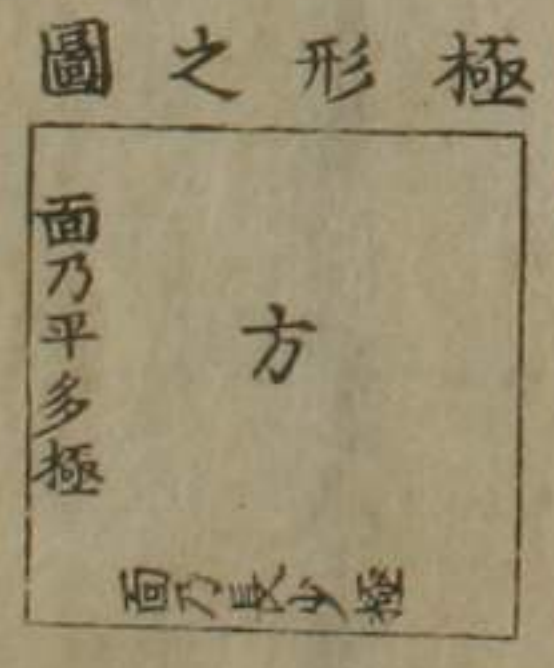 極形之圖
方
面乃平多極
面乃長少極